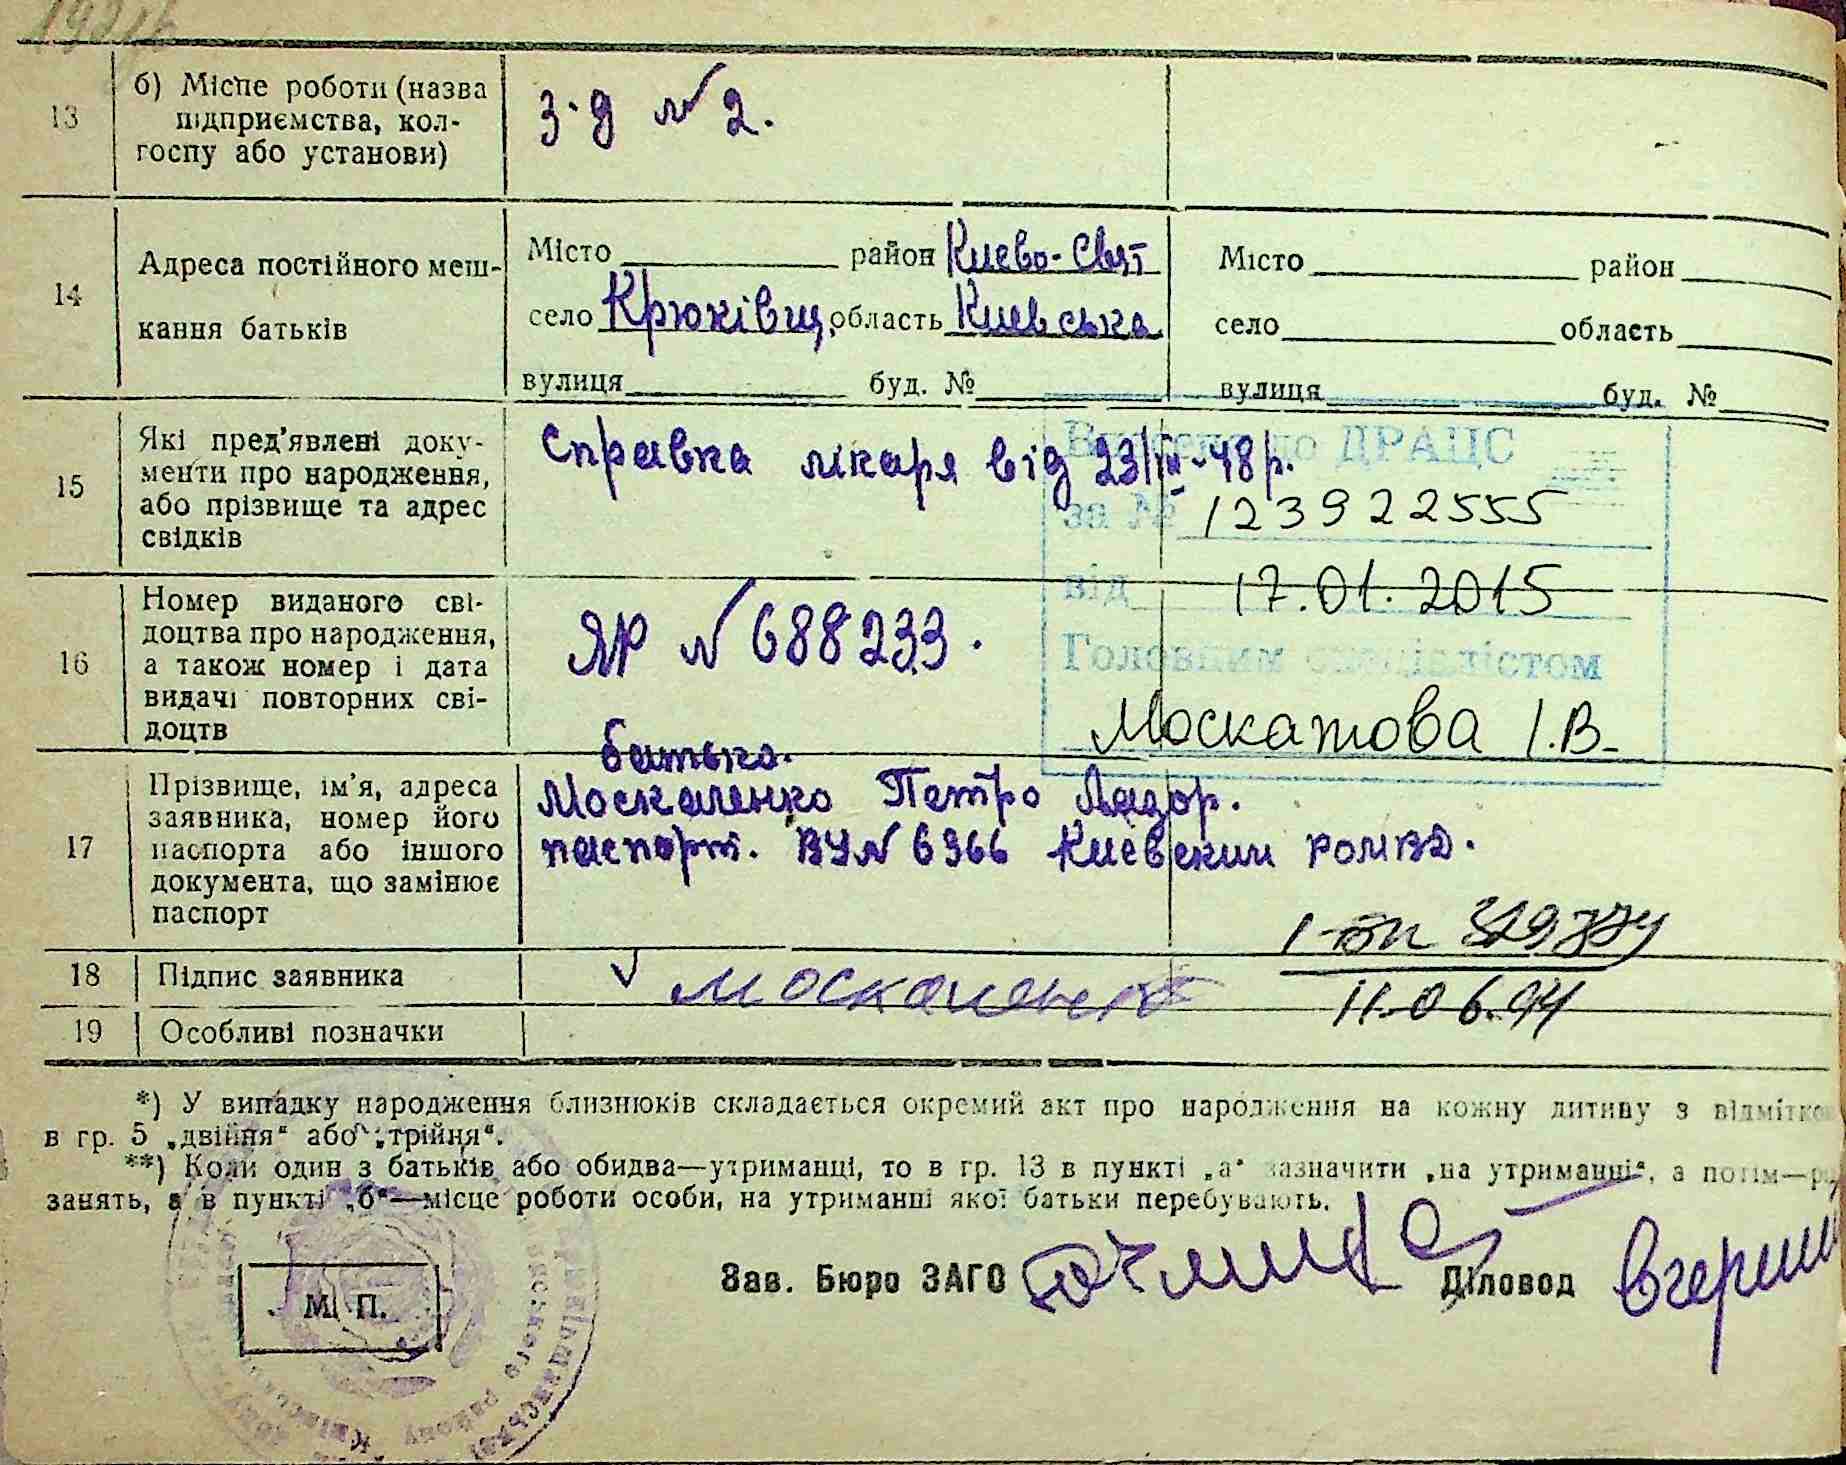 13
б) Місце роботи (назва
підприємства, кол-
госпу або установи)
з-д № 2.
14
Адреса постійного меш-
кання батьків
Місто район Києво-Свят
село Крюківщ. область Киевська
вулиця буд. №
Місто район
село область
вулиця буд. №
15
Які пред'явлені доку-
менти про народження,
або прізвище та адрес
свідків
Справка лікаря від 23/III-48 р.
Внесено до ДРАЦС
за № 123922555
від 17.01.2015
Головним спеціалістом
Москатова І.В.
16
Номер виданого сві-
доцтва про народження,
а також номер і дата
видачі повторних сві-
доцтв
ЯР № 688233.
17
Прізвище, ім'я, адреса
заявника, номер його
паспорта або іншого
документа, що замінює
паспорт
батько.
Москаленко Петро Лазор.
паспорт. ВУ № 6366 Киевским РОМВД.
11.06.94
18
Підпис заявника
Москаленко
19
Особливі позначки
*) У випадку народження близнюків складається окремий акт про народження на кожну дитину з
в гр. 5 „двійня“ або „трійця“.
**) Коли один з батьків або обидва—утриманці, то в гр. 13 в пункті „а“ зазначити „на утриманні“, а потім—
занять, а в пункті „б“—місце роботи особи, на утриманні якої батьки перебувають.
Зав. Бюро ЗАГС
Діловод
М. П.